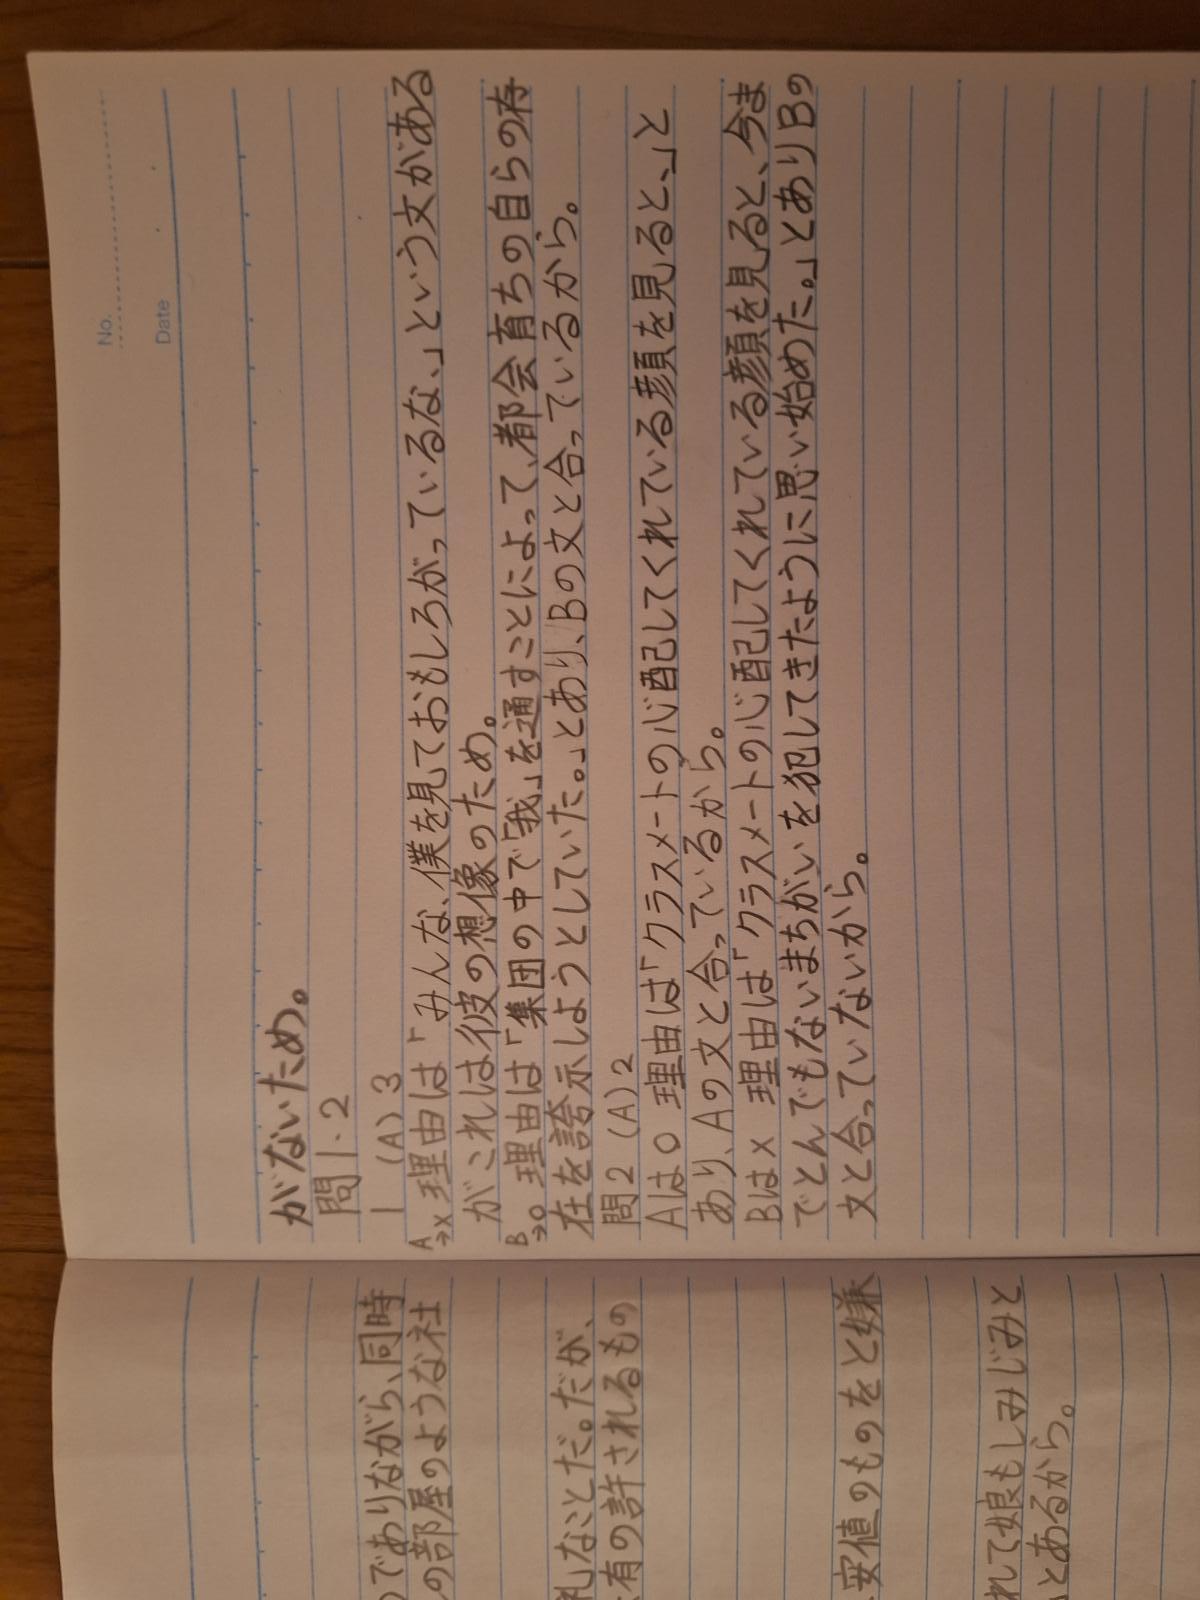 No.
Date
がないため。
問1.2
1 (A) 3
A→× 理由は「みんな、僕を見ておもしろがっているな、」という文がある
がこれは彼の想像のため。
B→○ 理由は「集団の中で「我」を通すことによって、都会育ちの自らの存
在を誇示しようとしていた。」とあり、Bの文と合っているから。
問2 (A) 2
Aは○ 理由は「クラスメートの心配してくれている顔を見ると、」と
あり、Aの文と合っているから。
Bは× 理由は「クラスメートの心配してくれている顔を見ると、今ま
でとんでもないまちがいを犯してきたように思い始めた。」とありBの
文と合っていないから。
のでありながら、同時
の部屋のような社
礼なことだ。だが、
有の許されるもの
安値のものをと嫌
れて娘もしみじみと
とあるから。